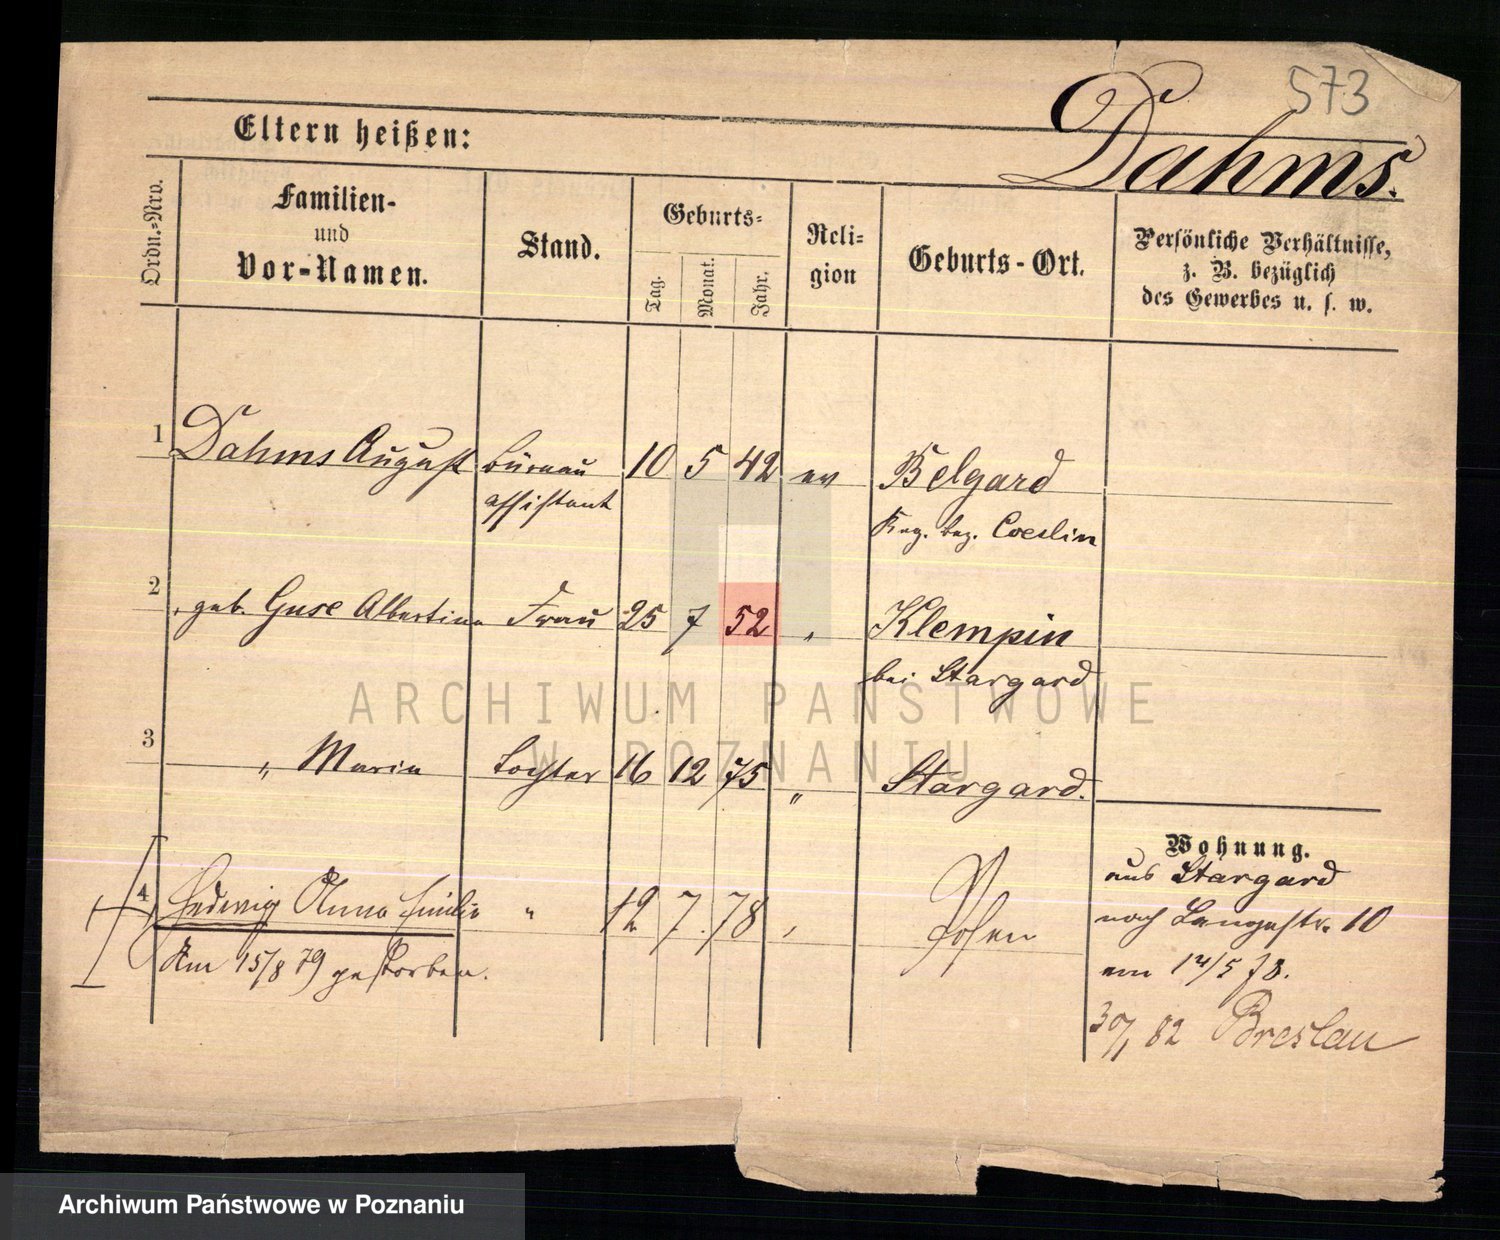 573
Dahms.
Eltern heißen:
Ordn.-Nro.
Familien-
und
Vor-Namen.
Stand.
Geburts-
Tag.
Monat.
Jahr.
Reli-
gion
Geburts-Ort.
Persönliche Verhältnisse,
z. B. bezüglich
des Gewerbes u. s. w.
1 Dahms August Büreau 10 5 42 ev Belgard
assistent Reg. bez. Coeslin
2 geb. Guse Albertine Frau 25 7 52 " Klempin
bei Stargard
3 " Maria Tochter 16 12 75 " Stargard.
Wohnung.
4 Hedwig Anna Emilie " 12 7 78 " Posen
Am 15/8 79 gestorben.
aus Stargard
nach Langestr. 10
am 14/5 78.
30/1 82 Breslau
ARCHIWUM PAŃSTWOWE
W POZNANIU
Archiwum Państwowe w Poznaniu